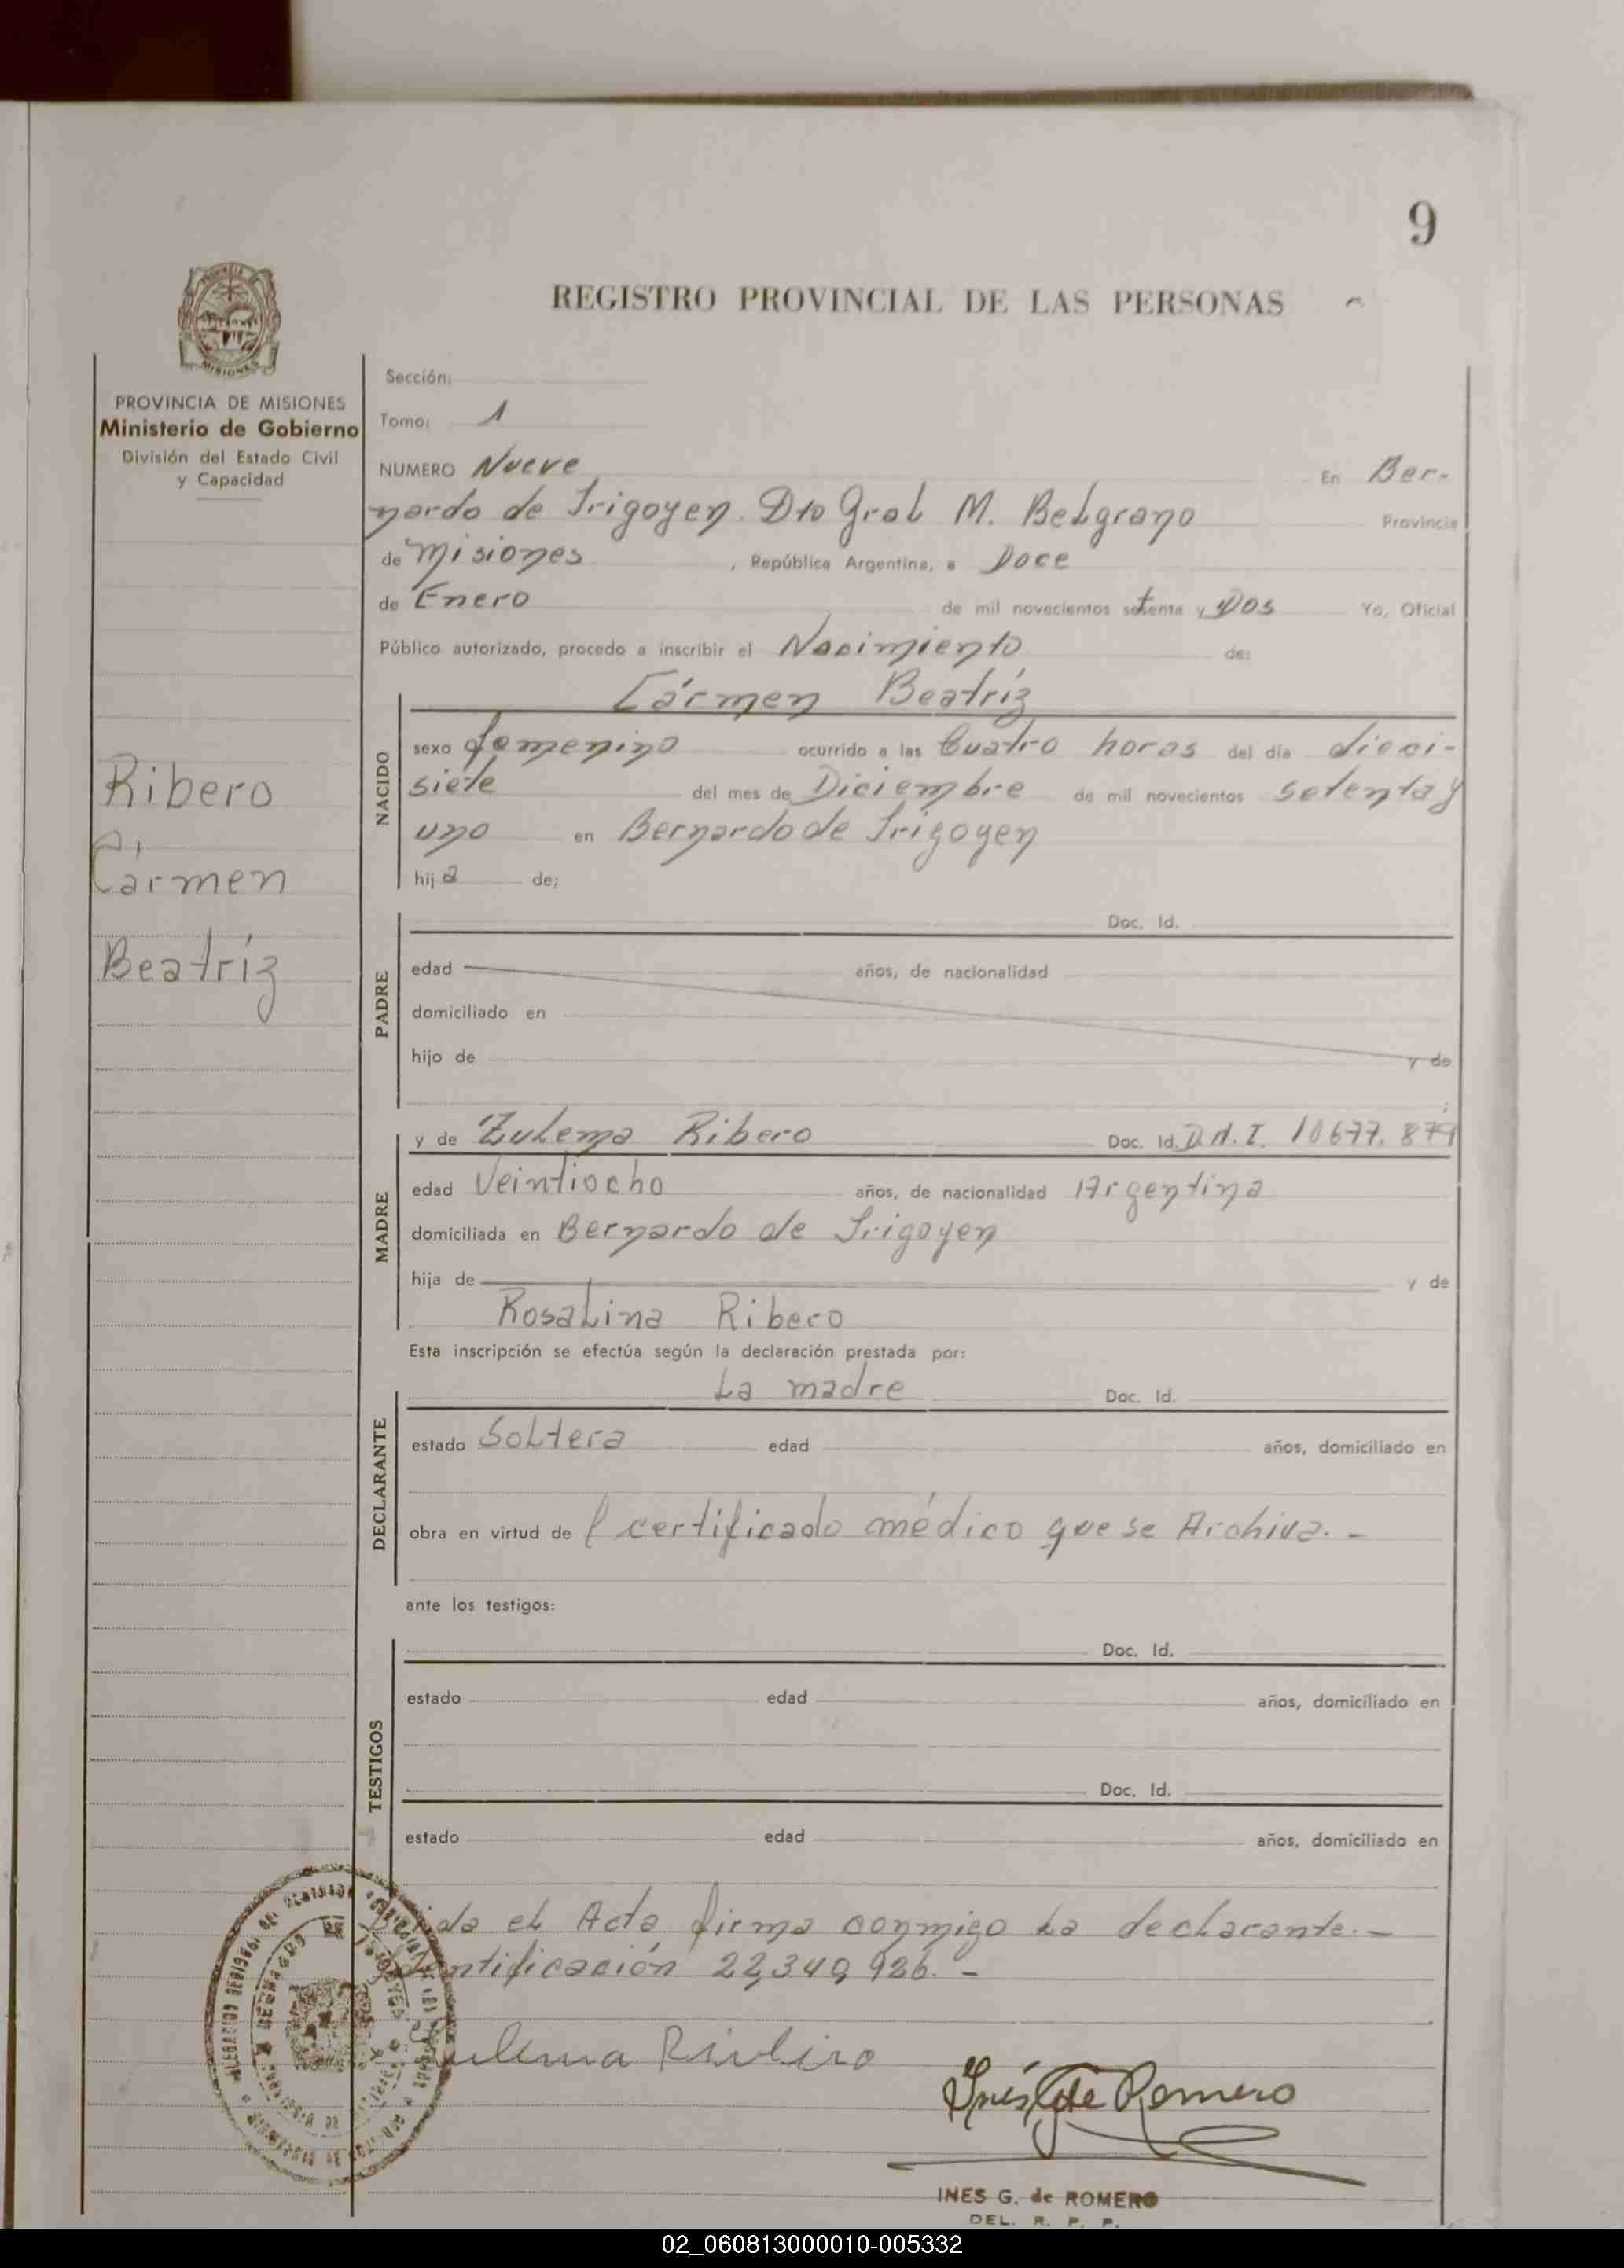 9
REGISTRO PROVINCIAL DE LAS PERSONAS
MISIONES
PROVINCIA DE MISIONES
Ministerio de Gobierno
División del Estado Civil
y Capacidad
Ribero
Cármen
Beatríz
Sección:
Tomo: 1
NUMERO Nueve En Ber-
nardo de Irigoyen. Dto Gral M. Belgrano Provincia
de Misiones , República Argentina, a Doce
de Enero de mil novecientos setenta y Dos Yo, Oficial
Público autorizado, procedo a inscribir el Nacimiento de:
Cármen Beatríz
NACIDO
sexo femenino ocurrido a las Cuatro horas del día dieci-
siete del mes de Diciembre de mil novecientos setenta y
uno en Bernardo de Irigoyen
hija de:
PADRE
Doc. Id.
edad años, de nacionalidad
domiciliado en
hijo de y de
MADRE
y de Zulema Ribero Doc. Id. D.N.I. 10677.879
edad Veintiocho años, de nacionalidad Argentina
domiciliada en Bernardo de Irigoyen
hija de y de
Rosalina Ribero
Esta inscripción se efectúa según la declaración prestada por:
DECLARANTE
La madre Doc. Id.
estado Soltera edad años, domiciliado en
obra en virtud de l certificado médico que se Archiva.-
ante los testigos:
TESTIGOS
Doc. Id.
estado edad años, domiciliado en
Doc. Id.
estado edad años, domiciliado en
el Acta firma conmigo la declarante.-
22,340,926.-
Zulema Ribeiro
Inés G de Romero
INES G. de ROMERO
DEL. R. P. P.
02_060813000010-005332